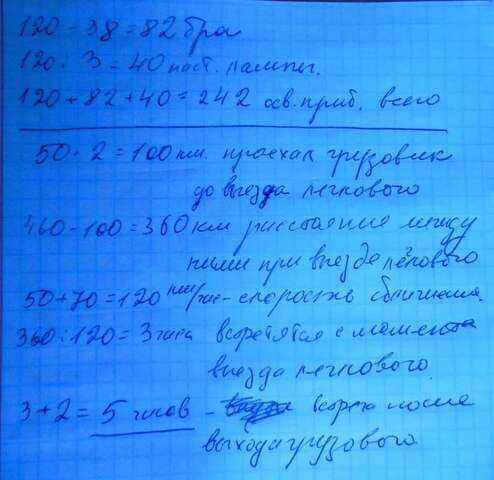 120 - 38 = 82 бра
120 : 3 = 40 наст. лампы.
120 + 82 + 40 = 242 осв. приб. всего
50 · 2 = 100 км. проехал грузовик
до выезда легкового
460 - 100 = 360 км расстояние между
ними при выезде легкового
50 + 70 = 120 км/час - скорость сближения.
360 : 120 = 3 часа встретятся с момента
выезда легкового
3 + 2 = 5 часов - встреча после
выхода грузового